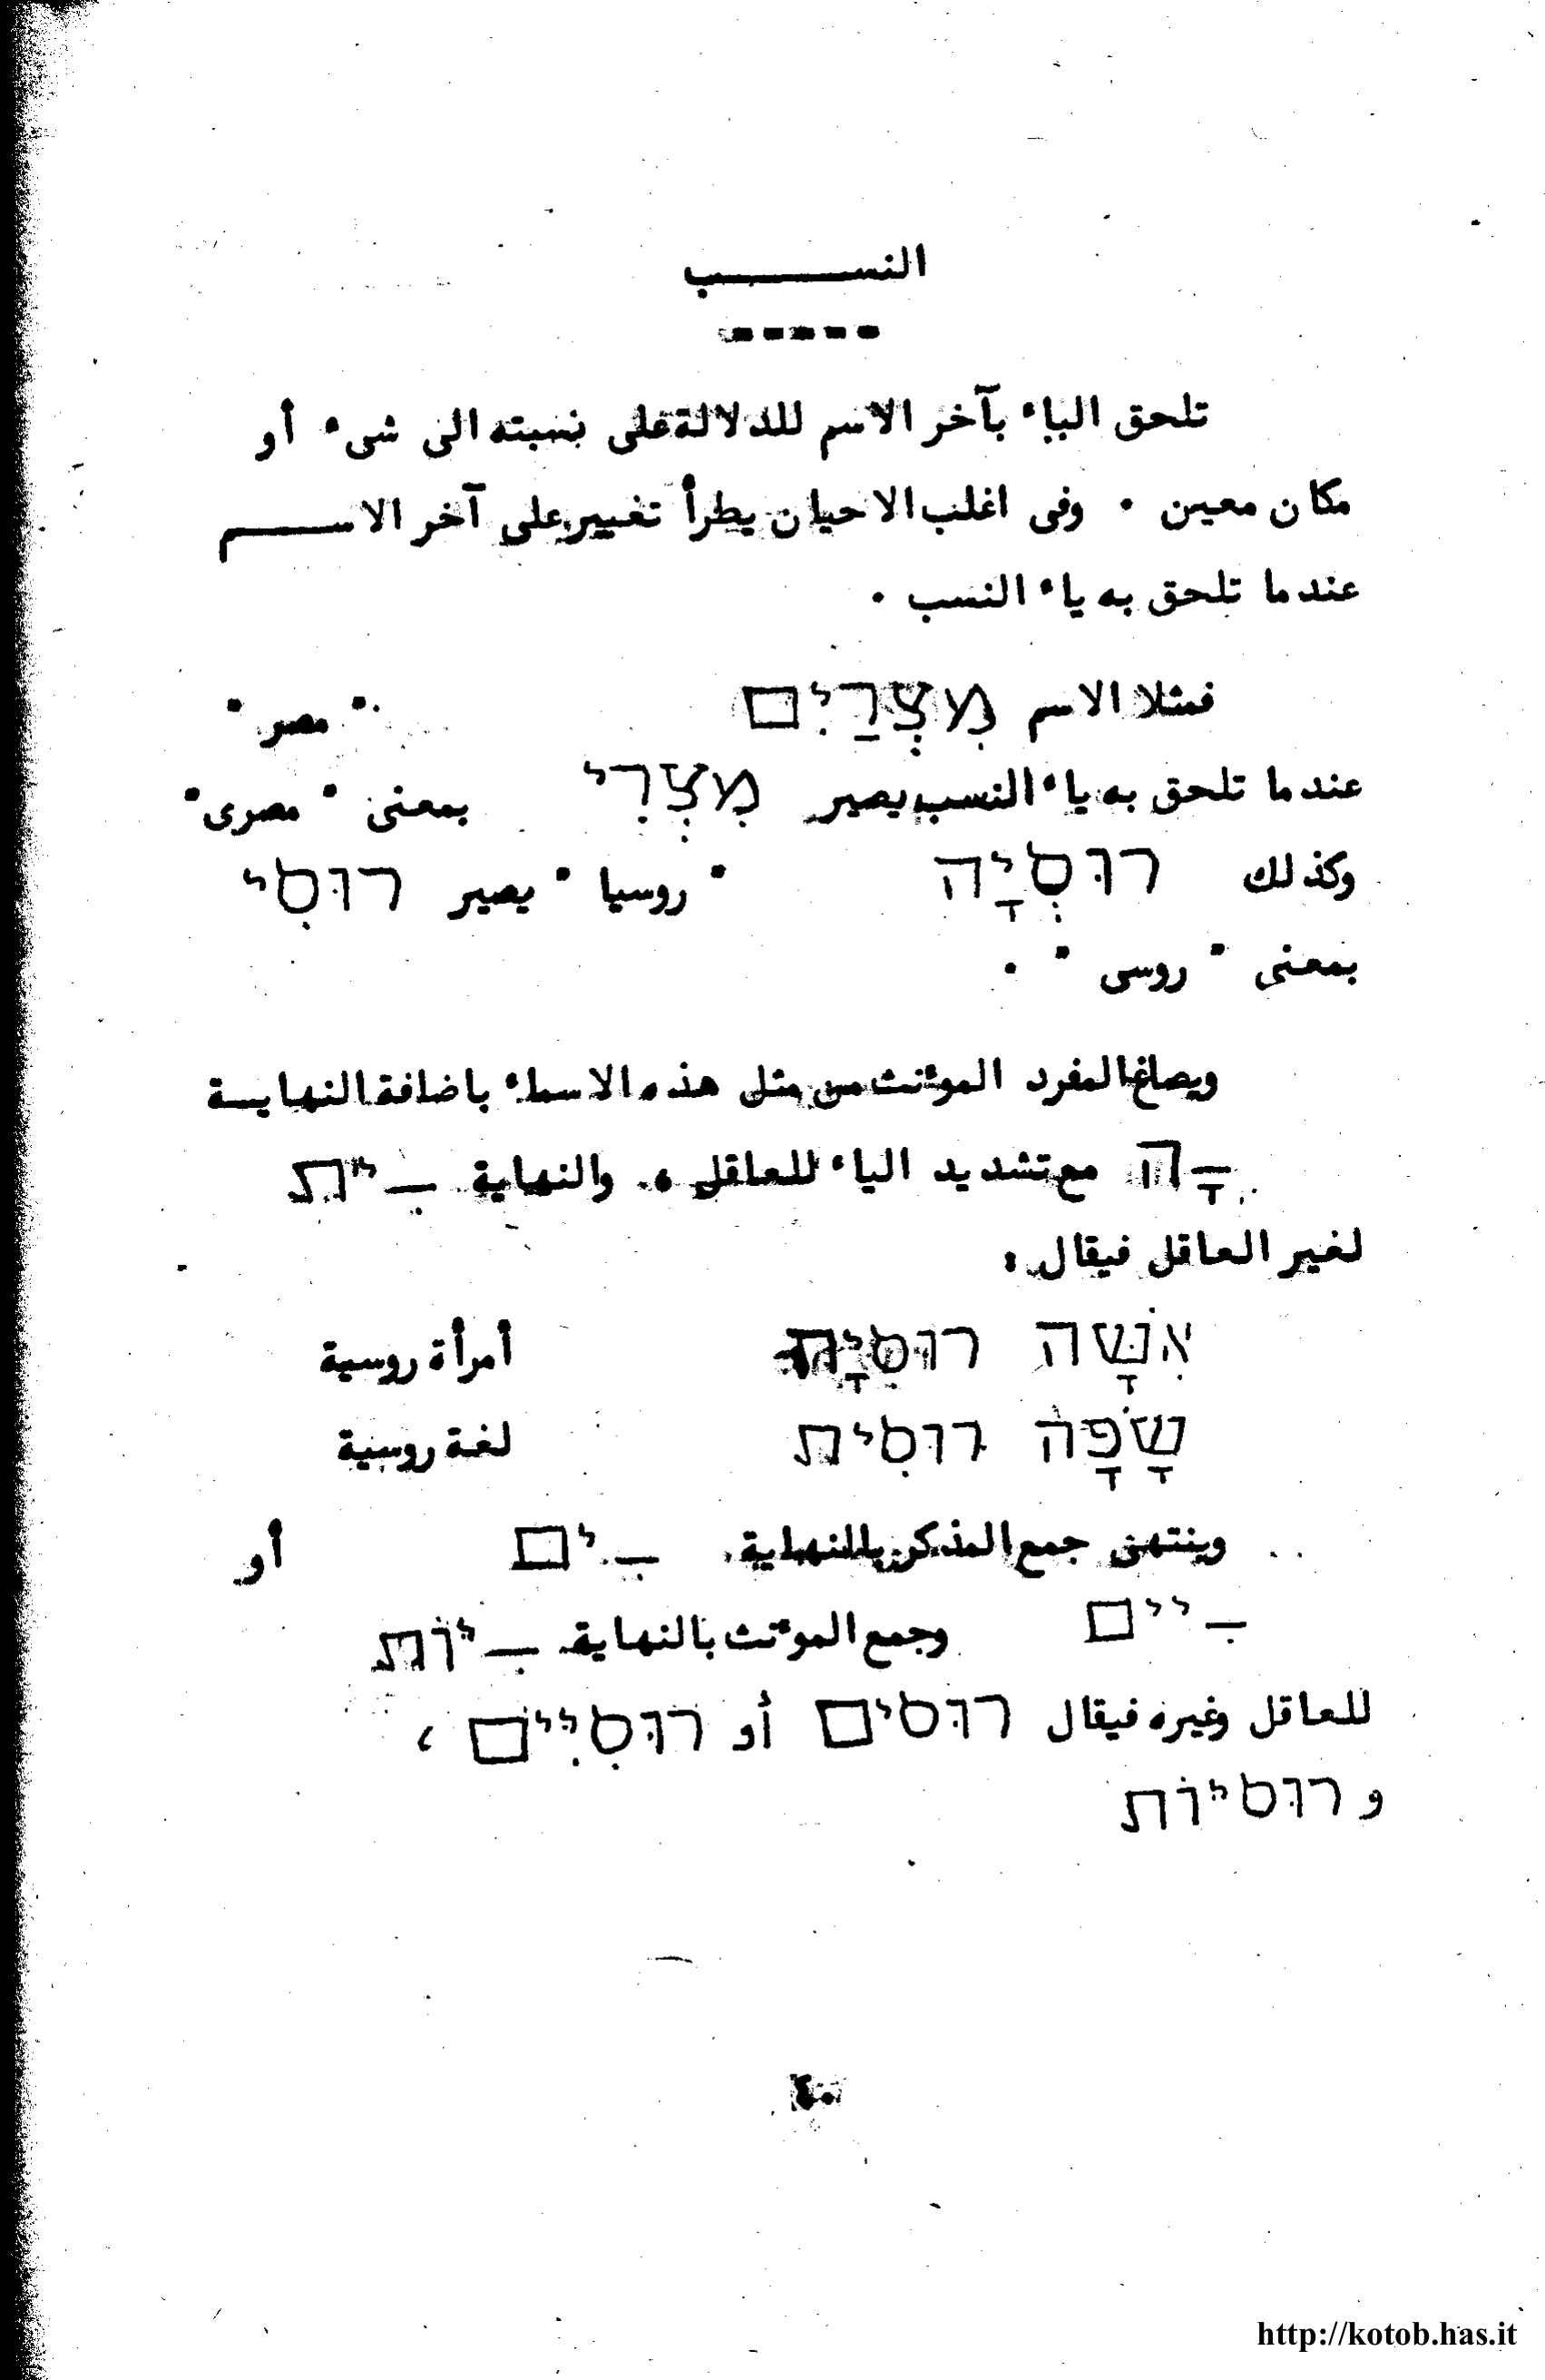 النســـــب
-----
تلحق الياء بآخر الاسم للدلالة على نسبته الى شىء أو
مكان معين . وفى اغلب الاحيان يطرأ تغيير على آخر الاســـم
عندما تلحق به ياء النسب .
فمثلا الاسم מִצְרַיִם " مصر "
عندما تلحق به ياء النسب يصير מִצְרִי بمعنى " مصرى "
وكذلك רוּסְיָה " روسيا " يصير רוּסִי
بمعنى " روسى " .
ويصاغ المفرد المؤنث من مثل هذه الاسماء باضافة النهايـة
ـָה مع تشديد الياء للعاقل ، والنهاية ـִית
لغير العاقل فيقال :
אִשָּׁה רוּסִיָּה أمرأة روسية
שָׂפָה רוּסִית لغة روسية
وينتهى جمع المذكر بالنهاية ـִים أو
ـִיים وجمع المؤنث بالنهاية ـִיוֹת
للعاقل وغيره فيقال רוּסִים أو רוּסִיִּים ،
و רוּסִיוֹת
٤٠
http://kotob.has.it